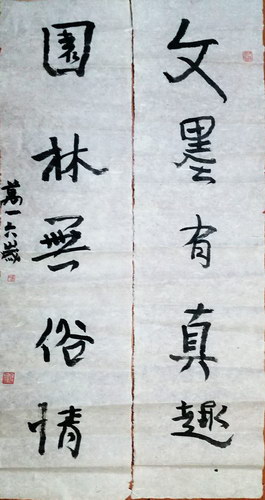 文墨有真趣
園林無俗情
萬一六歲